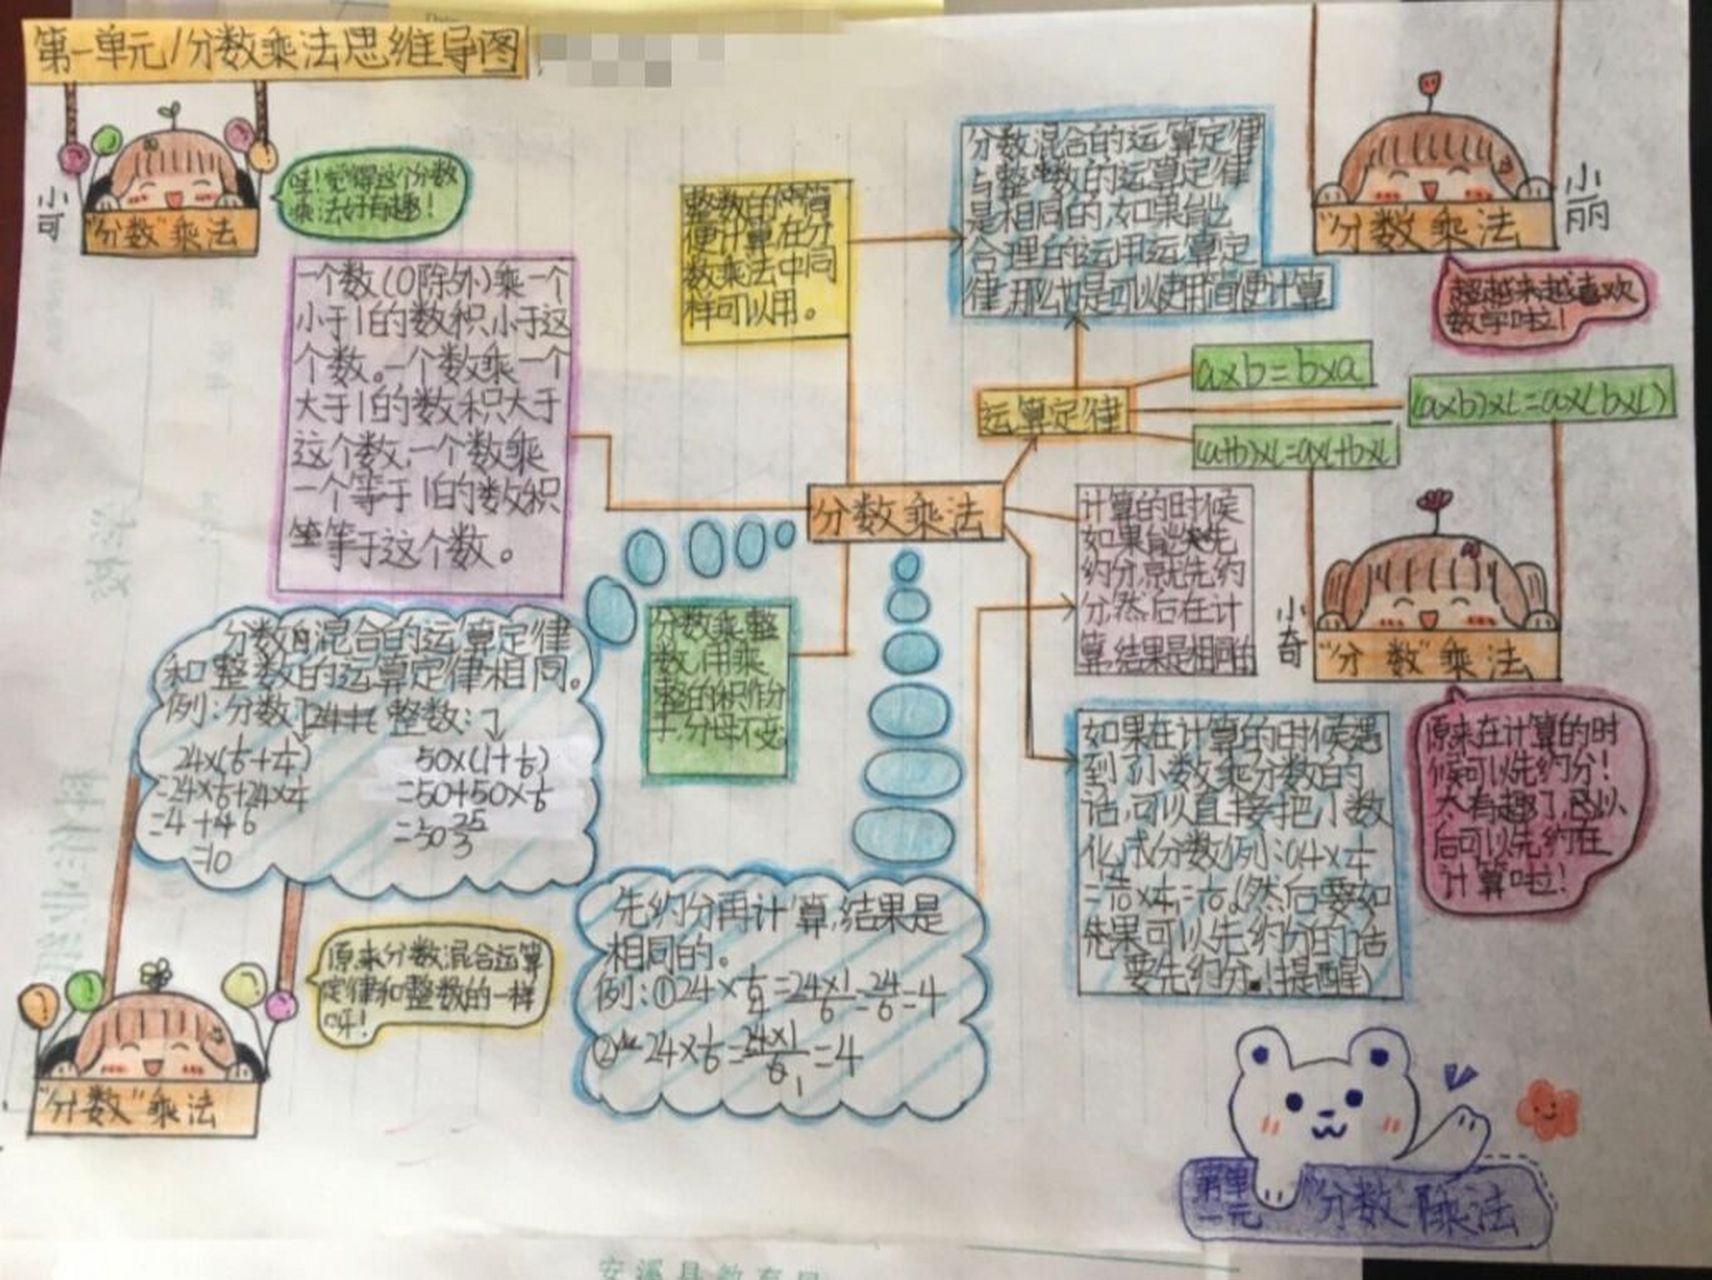 第一单元/分数乘法思维导图
小可
"分数"乘法
哇!觉得这个分数
乘法好有趣!
一个数(0除外)乘一个
小于1的数积小于这
个数。一个数乘一个
大于1的数积大于
这个数,一个数乘
一个等于1的数积
等于这个数。
整数的简
便计算,在分
数乘法中同
样可以用。
分数混合的运算定律
与整数的运算定律
是相同的,如果能
合理的运用运算定
律,那么也是可以使用简便计算
小丽
"分数"乘法
超越来越喜欢
数学啦!
运算定律
a×b=b×a
(a×b)×c=a×(b×c)
(a+b)×c=ac+b×c
分数乘法
计算的时候
如果能先
约分,就先约
分然后在计
算,结果是相同的
小奇
"分数"乘法
原来在计算的时
候可以先约分!
太有趣了,以
后可以先约在
计算啦!
分数乘整
数,用乘
整的积作分
子,分母不变
分数的混合的运算定律
和整数的运算定律相同。
例:分数 整数:
24×(1/6+1/4)
=24×1/6+24×1/4
=4+6
=10
50×(1+1/6)
=50+50×1/6
原来分数混合运算
定律和整数的一样
呀!
"分数"乘法
先约分再计算,结果是
相同的。
例:①24×1/6=24×1/6=24/6=4
②24×1/6=24×1/6=4
如果在计算的时候遇
到了小数乘分数的
话,可以直接把小数
化成分数例:0.4×1/4
=4/10×1/4=1/10。(然后要如
果可以先约分的话
要先约分!提醒)
第一单元
"分数"乘法
安溪县教育局